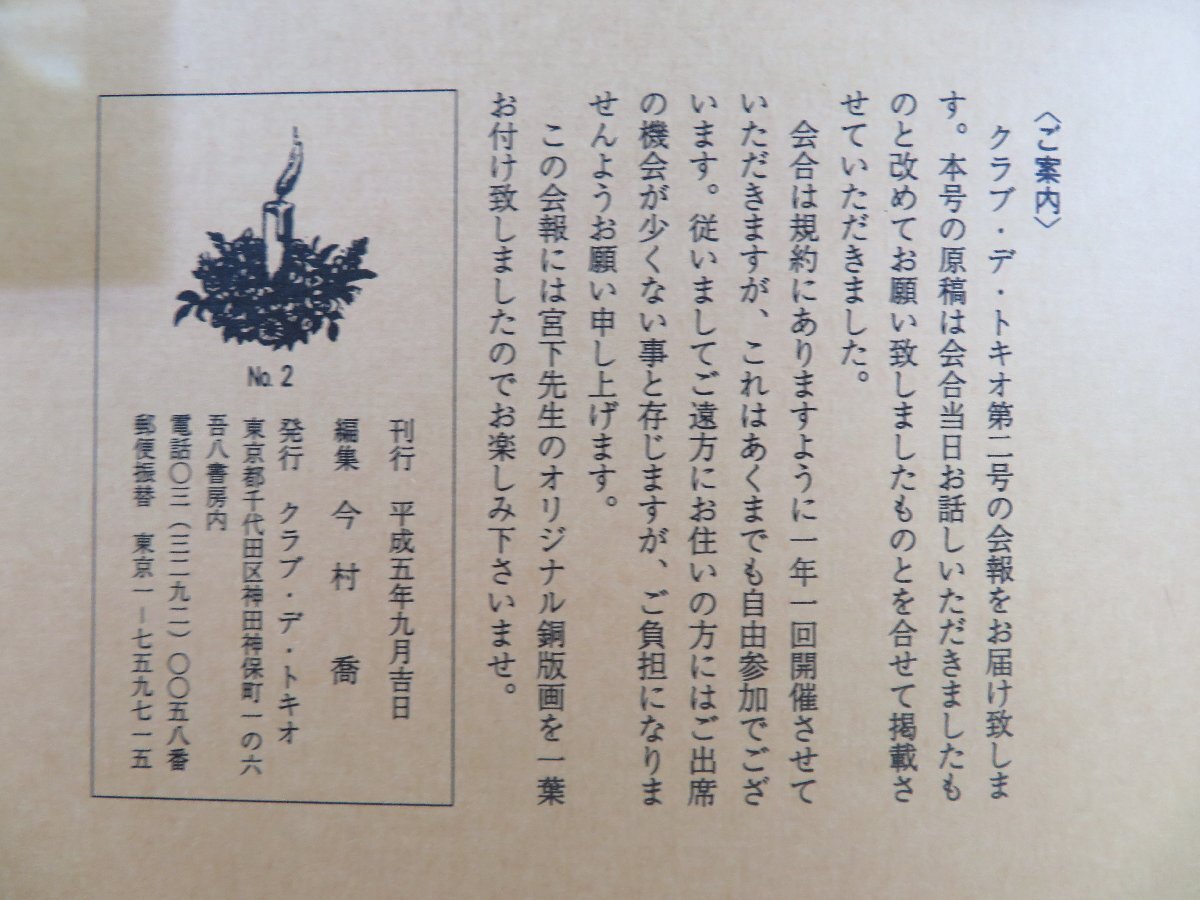 〈ご案内〉
クラブ・デ・トキオ第二号の会報をお届け致しま
す。本号の原稿は会合当日お話しいただきましたも
のと改めてお願い致しましたものとを合せて掲載さ
せていただきました。
会合は規約にありますように一年一回開催させて
いただきますが、これはあくまでも自由参加でござ
います。従いましてご遠方にお住いの方にはご出席
の機会が少くない事と存じますが、ご負担になりま
せんようお願い申し上げます。
この会報には宮下先生のオリジナル銅版画を一葉
お付け致しましたのでお楽しみ下さいませ。
No. 2
刊行 平成五年九月吉日
編集 今村 喬
発行 クラブ・デ・トキオ
東京都千代田区神田神保町一の六
吾八書房内
電話〇三（三二九二）〇〇五八番
郵便振替 東京一－七五九七一五